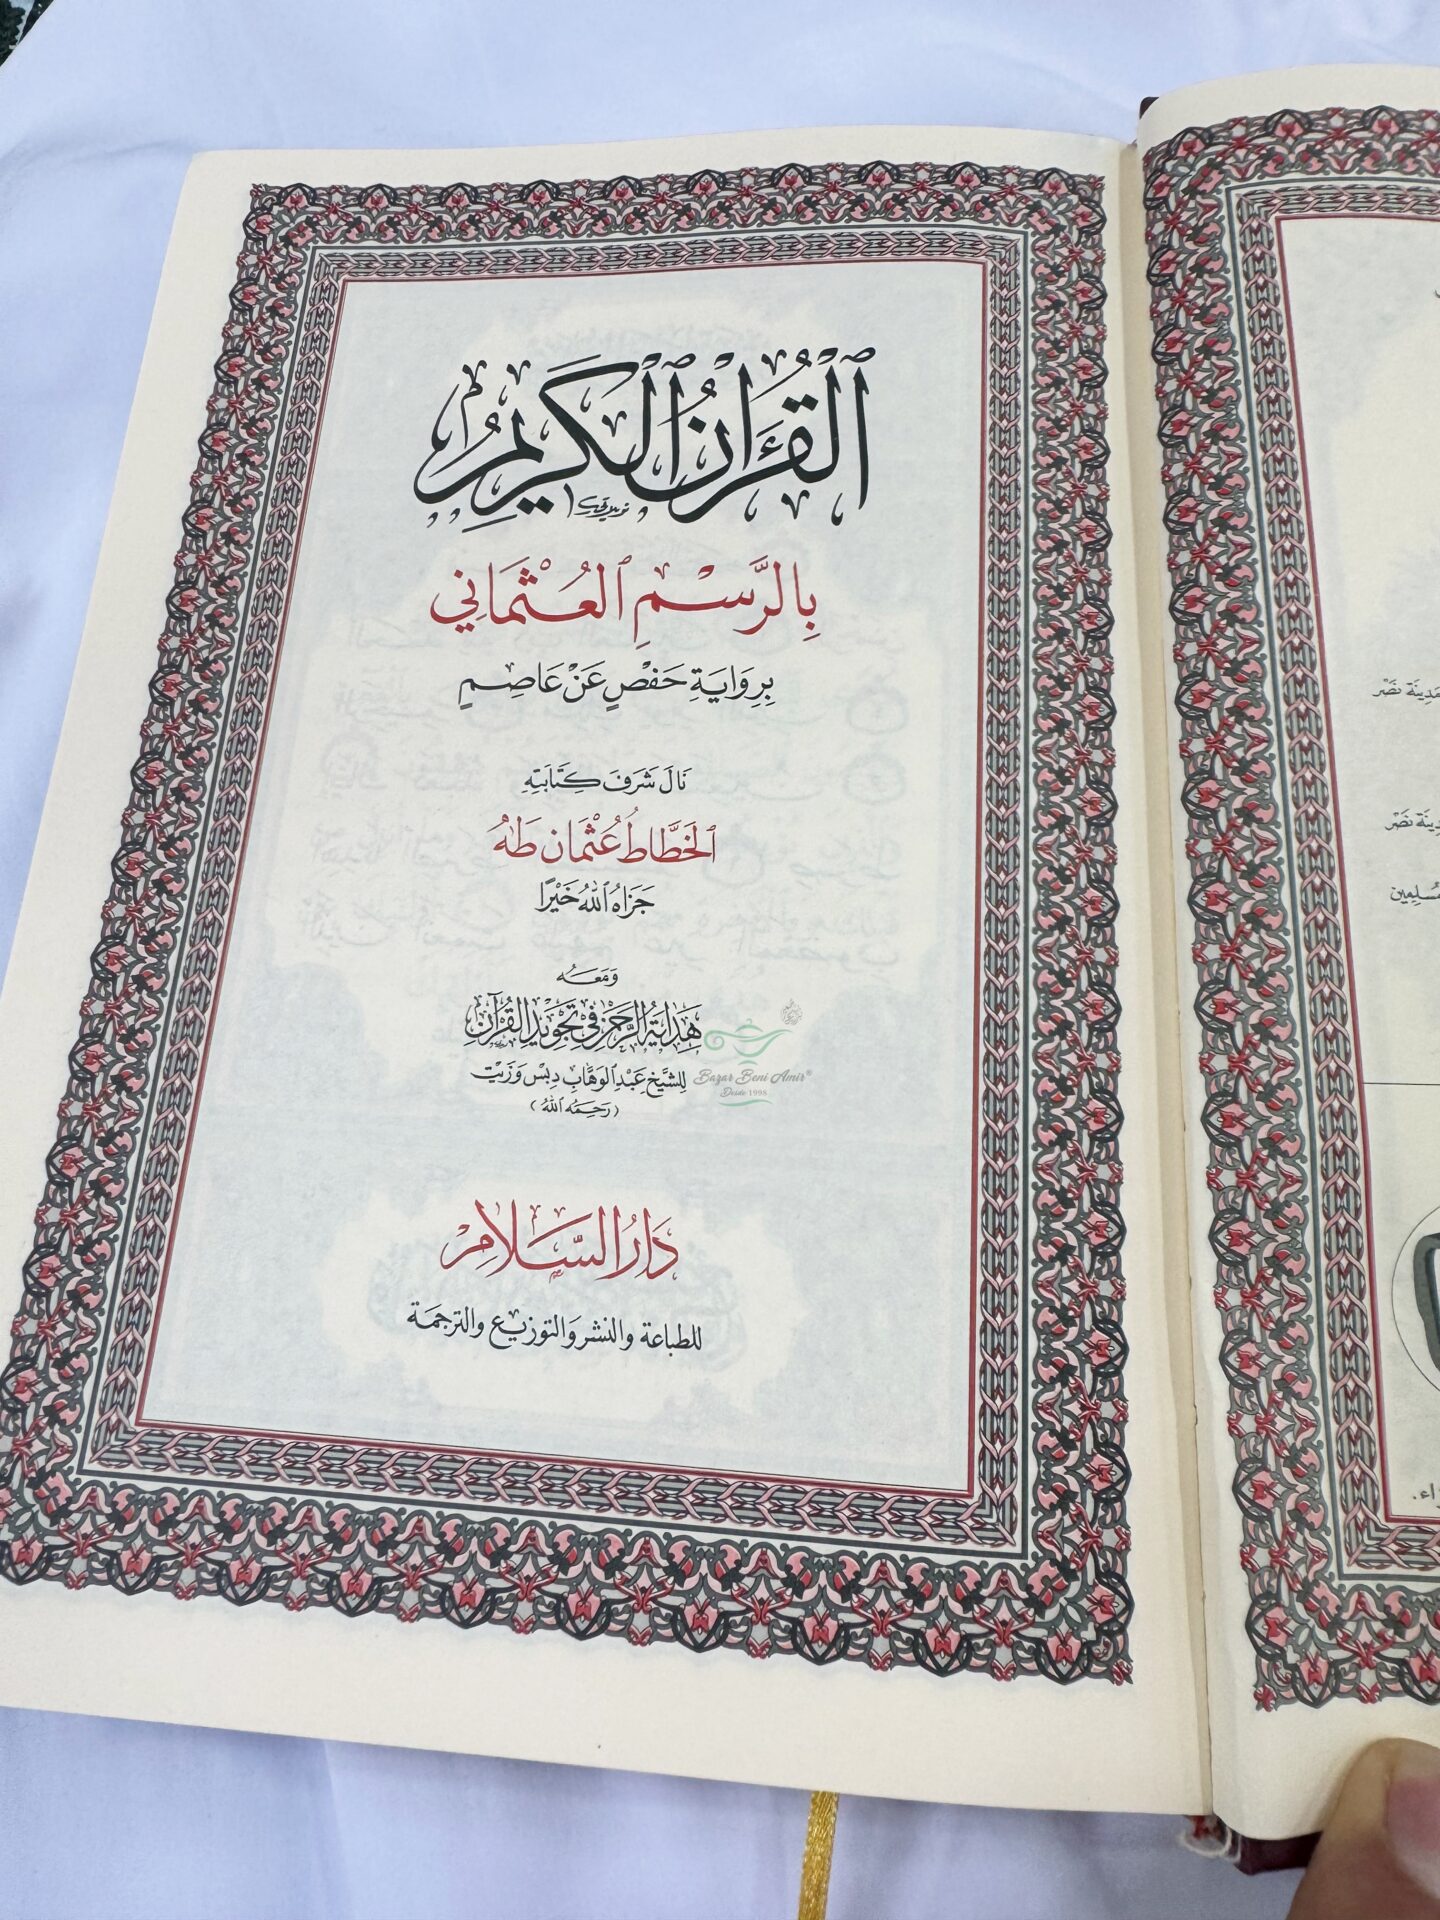 ٱلْقُرْءَانُ ٱلْكَرِيمُ
بِالرَّسْمِ ٱلْعُثْمَانِي
بِرِوَايَةِ حَفْصٍ عَنْ عَاصِمٍ
نَالَ شَرَفَ كِتَابَتِهِ
ٱلْخَطَّاطُ عُثْمَان طَهٰ
جَزَاهُ ٱللهُ خَيْرًا
وَمَعَهُ
هِدَايَةُ الرَّحْمٰنِ فِي تَجْوِيدِ الْقُرْآنِ
لِلشَّيْخِ عَبْدِ الوَهَّابِ دِبْس وَزَيْت
(رَحِمَهُ ٱللهُ)
Bazar Beni Amir®
Desde 1998
دَارُ السَّلَامِ
للطباعة والنشر والتوزيع والترجمة
مَدِينَة نَصْر
مَدِينَة نَصْر